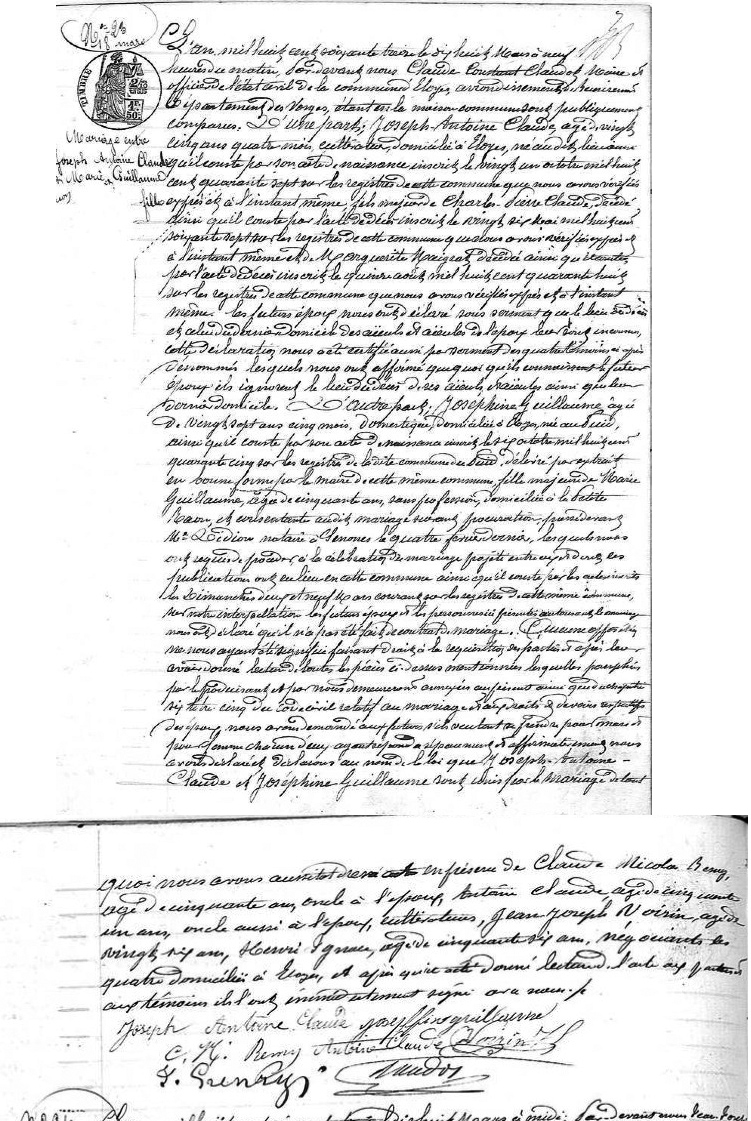 N° 23
18 mars
TIMBRE
Mariage entre
Joseph Antoine Claude
et Marie Guillaume
L'an mil huit cent soixante treize le dix huit Mars à neuf
heures du matin, Pardevant nous Claude Constant Claudot Maire et
officier de l'état civil de la commune d'Eloyes arrondissement de Remiremont
Département des Vosges, étant en la maison commune sont publiquement
comparus. D'une part, Joseph Antoine Claude, agé de vingt
cinq ans quatre mois, cultivateur, domicilié à Eloyes, né audit lieu ainsi
qu'il conste par son acte de naissance inscrit le vingt un octobre mil huit
cent quarante sept sur les registres de cette commune que nous avons vérifiés
exprès et à l'instant même, fils majeur de Charles Pierre Claude, décédé
ainsi qu'il conste par l'acte de décès inscrit le vingt six mai mil huit cent
soixante sept sur les registres de cette commune que nous avons vérifiés exprès et
à l'instant même et de Marguerite décédée ainsi qu'il conste
par l'acte de décès inscrit le quinze août mil huit cent quarante huit
sur les registres de cette commune que nous avons vérifiés exprès et à l'instant
même. les futurs époux nous ont déclaré sous serment que le lieu du décès
et celui du dernier domicile des aïeuls et aïeules de l'époux leur sont inconnus,
cette déclaration nous a été certifiée aussi par serment des quatre témoins ci après
dénommés lesquels nous ont affirmé que quoi qu'ils connaissent le futur
époux ils ignorent le lieu du décès de ses aïeuls et aïeules ainsi que leur
dernier domicile. D'autre part, Joséphine Guillaume, agée
de vingt sept ans cinq mois, domestique, domiciliée à Eloyes, née au
ainsi qu'il conste par son acte de naissance inscrit le six octobre mil huit cent
quarante cinq sur les registres de la dite commune du délivré par extrait
en bonne forme par le maire de cette même commune, fille majeure de Marie
Guillaume, agée de cinquante ans, sans profession, domiciliée à la petite
Raon, et consentante audit mariage suivant procuration passée devant
Me notaire à Senones le quatre février dernier, lesquels nous
ont requis de procéder à la célébration du mariage projeté entre eux et dont les
publications ont eu lieu en cette commune ainsi qu'il conste par les actes inscrits
les Dimanches deux et neuf Mars courant sur les registres de cette même commune,
sur notre interpellation les futurs époux et les personnes ici présentes autorisant le mariage
nous ont déclaré qu'il n'a pas été fait de contrat de mariage. Aucune opposition
ne nous ayant été signifiée faisant droit à la réquisition des parties et après leur
avoir donné lecture de toutes les pièces ci-dessus mentionnées lesquelles paraphées
par le produisant et par nous demeureront annexées au présent ainsi que du chapitre
six titre cinq du Code civil relatif au mariage et aux droits et devoirs respectifs
des époux, nous avons demandé aux futurs s'ils veulent se prendre pour mari et
pour femme chacun d'eux ayant répondu séparément et affirmativement nous
avons déclaré et déclarons au nom de la loi que Joseph Antoine
Claude et Joséphine Guillaume sont unis par le mariage de tout
quoi nous avons aussitot dressé acte en présence de Claude Nicolas Remy,
agé de cinquante ans, oncle à l'époux, Antoine Claude agé de cinquante
un ans, oncle aussi à l'époux, cultivateurs, Jean Joseph Voirin, agé de
vingt six ans, Henri Ignace, agé de cinquante six ans, négociants les
quatre domiciliés à Eloyes, et après qu'il a été donné lecture de l'acte aux parties et
aux témoins ils l'ont immédiatement signé avec nous.
Joseph Antoine Claude Joseffine guillaume
C. N. Remy Antoine Claude Voirin JJ
Claudot